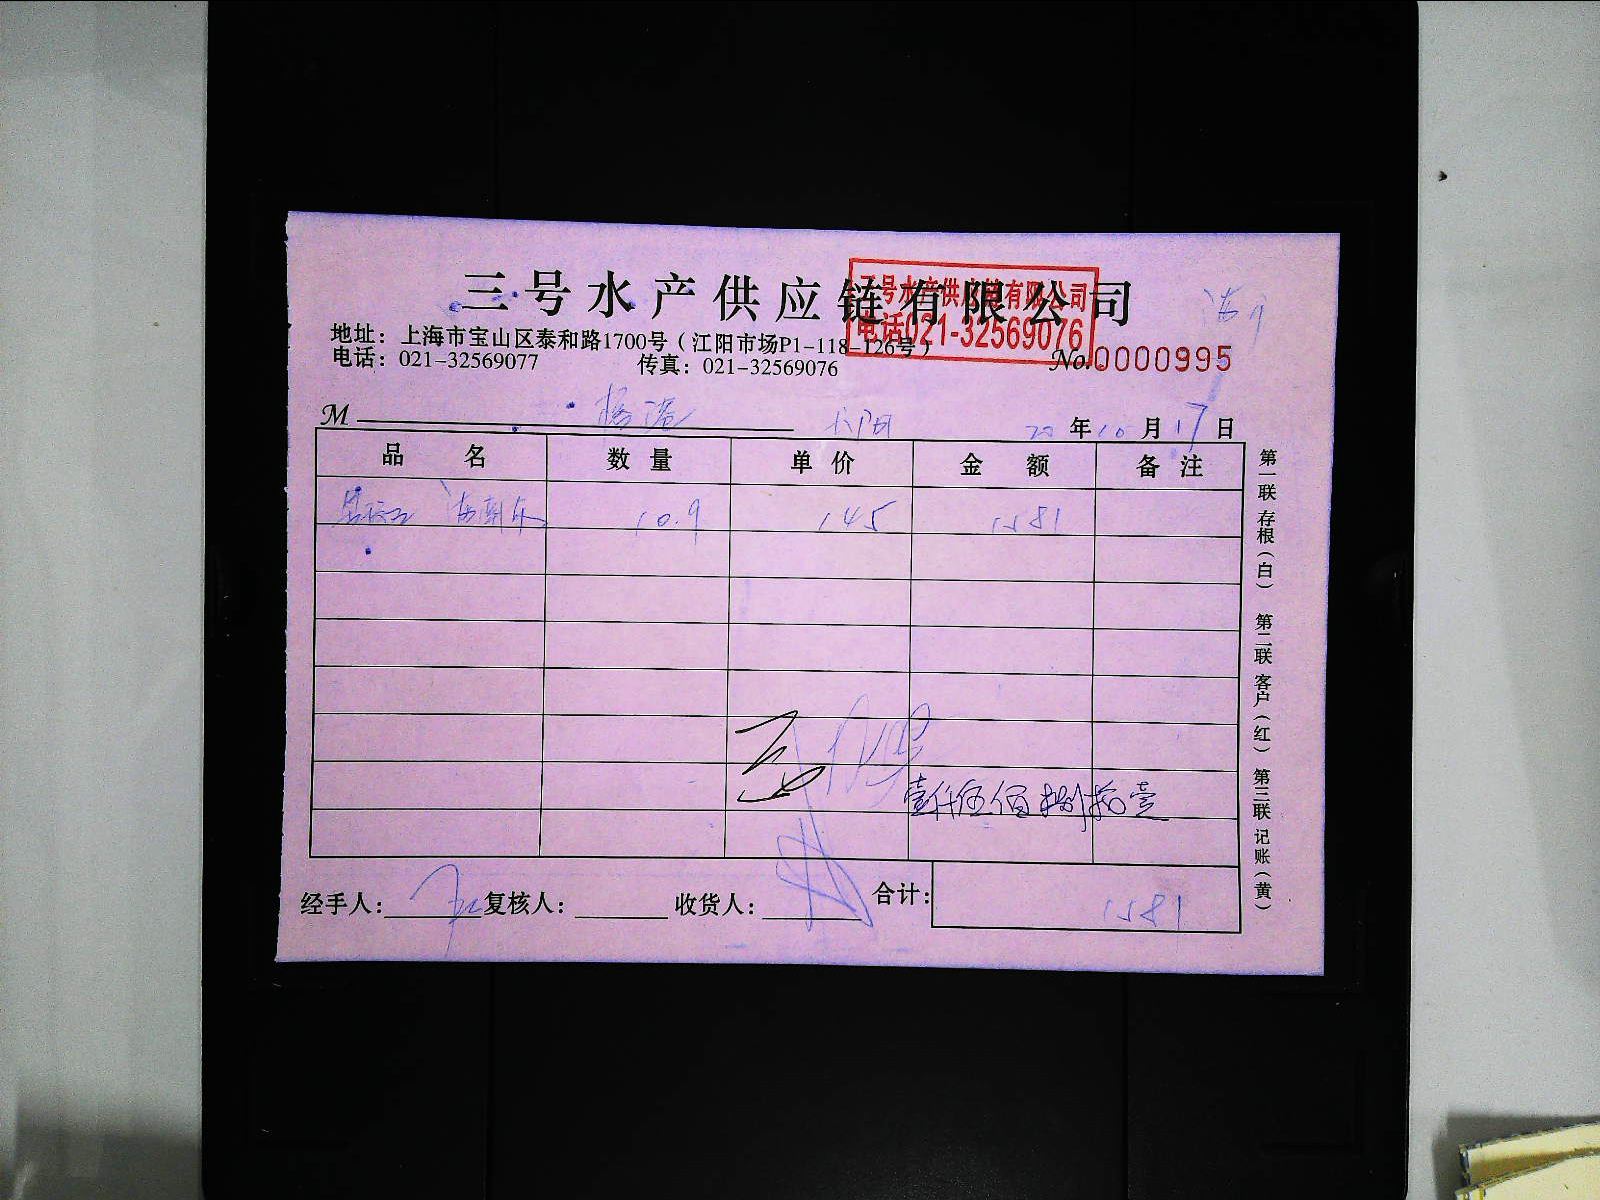 三号水产供应链有限公司
三号水产供应链有限公司
电话021-32569076
地址：上海市宝山区泰和路1700号（江阳市场P1-118-126号）
电话：021-32569077 传真：021-32569076
No. 0000995
M
20年10月17日
品名 数量 单价 金额 备注
10.9 145 1581
壹仟伍佰捌拾壹
经手人： 复核人： 收货人： 合计： 1581
第一联 存根（白） 第二联 客户（红） 第三联 记账（黄）